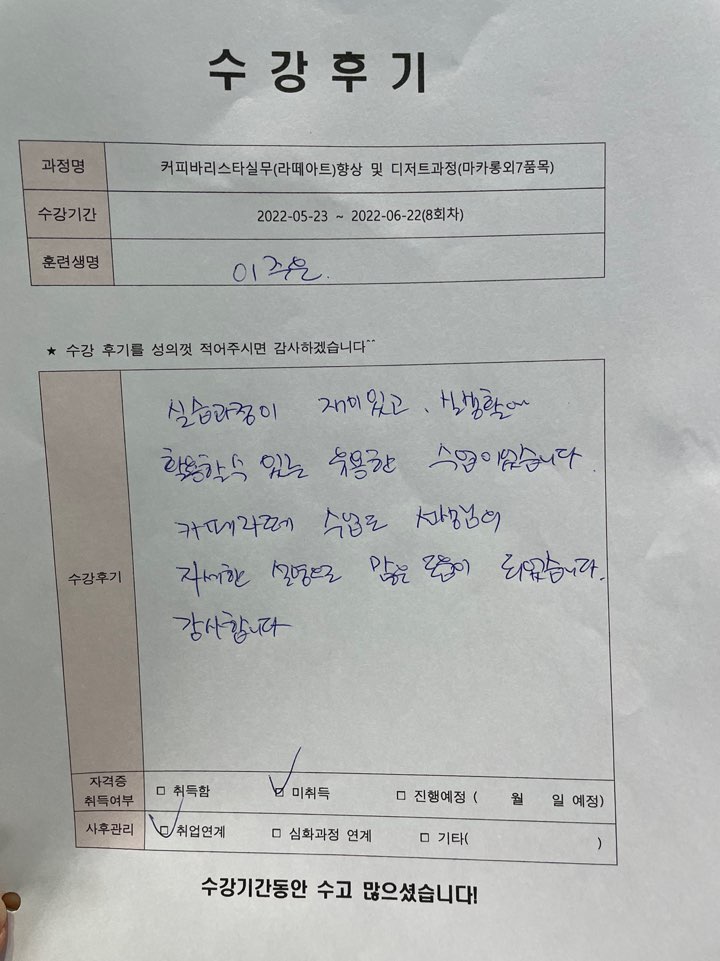 수강후기
과정명 커피바리스타실무(라떼아트)향상 및 디저트과정(마카롱외7품목)
수강기간 2022-05-23 ~ 2022-06-22(8회차)
훈련생명 이주은.
★ 수강 후기를 성의껏 적어주시면 감사하겠습니다^^
수강후기
실습과정이 재미있고, 실생활에
활용할수 있는 유용한 수업이었습니다.
카페라떼 수업도 선생님의
자세한 설명으로 많은 도움이 되었습니다.
감사합니다
자격증
취득여부 □ 취득함 □ 미취득 □ 진행예정 ( 월 일 예정)
사후관리 □ 취업연계 □ 심화과정 연계 □ 기타( )
수강기간동안 수고 많으셨습니다!